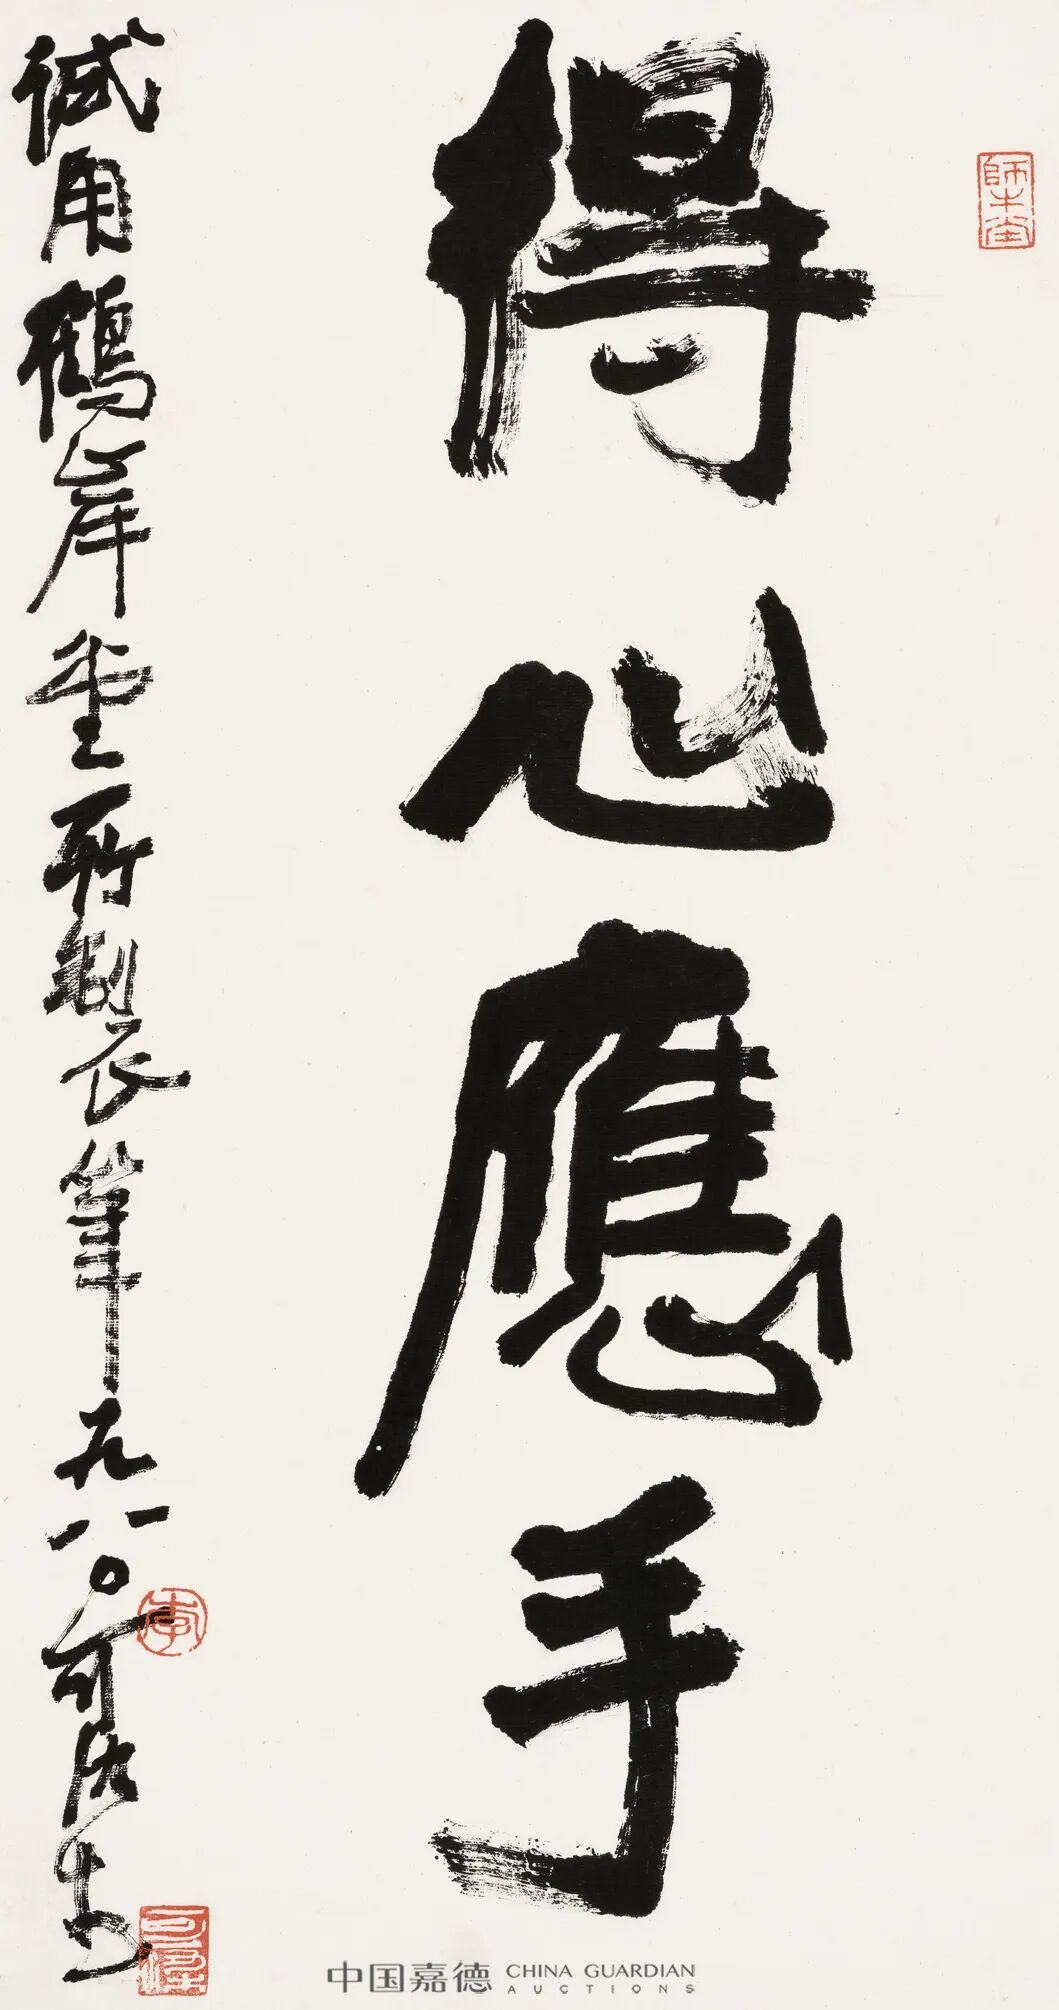 得心應手
試用鶴岸堂所製長筆一九八〇可染書
師牛堂
李
可染
中国嘉德 CHINA GUARDIAN
AUCTIONS